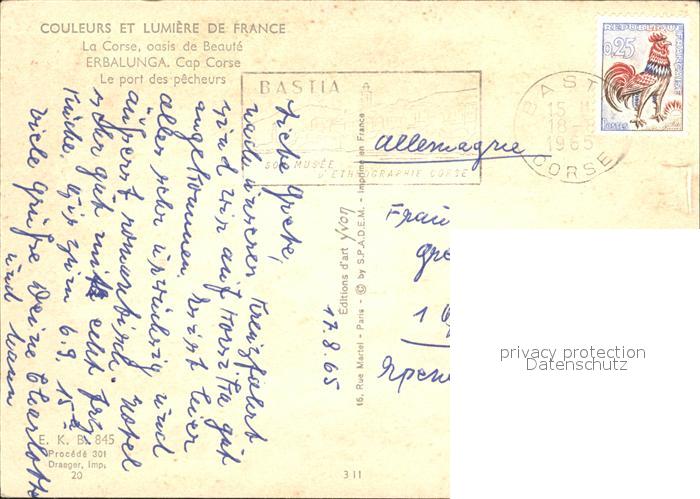 COULEURS ET LUMIÈRE DE FRANCE
La Corse, oasis de Beauté
ERBALUNGA. Cap Corse
Le port des pêcheurs
BASTIA
SON MUSÉE
D'ETHNOGRAPHIE CORSE
BASTIA
15
18
1965
CORSE
REPUBLIQUE
FRANÇAISE
0,25
Postes
Liebe Grete,
nach unserer Kreuzfahrt
sind wir auf Korsika gut
angekommen. Es ist hier
alles sehr ursprünglich und
äußerst romantisch. Hotel
sehr gut mit echt frz.
Küche. Bis zum 6.9.
Viele Grüße Deine Charlotte
und Mann
17.8.65
Éditions d'art Yvon
15, Rue Martel - Paris - © by S.P.A.D.E.M. - Imprimé en France
Allemagne
Frau
1
E. K. B. 845
Procédé 301
Draeger, Imp.
20
3 11
privacy protection
Datenschutz